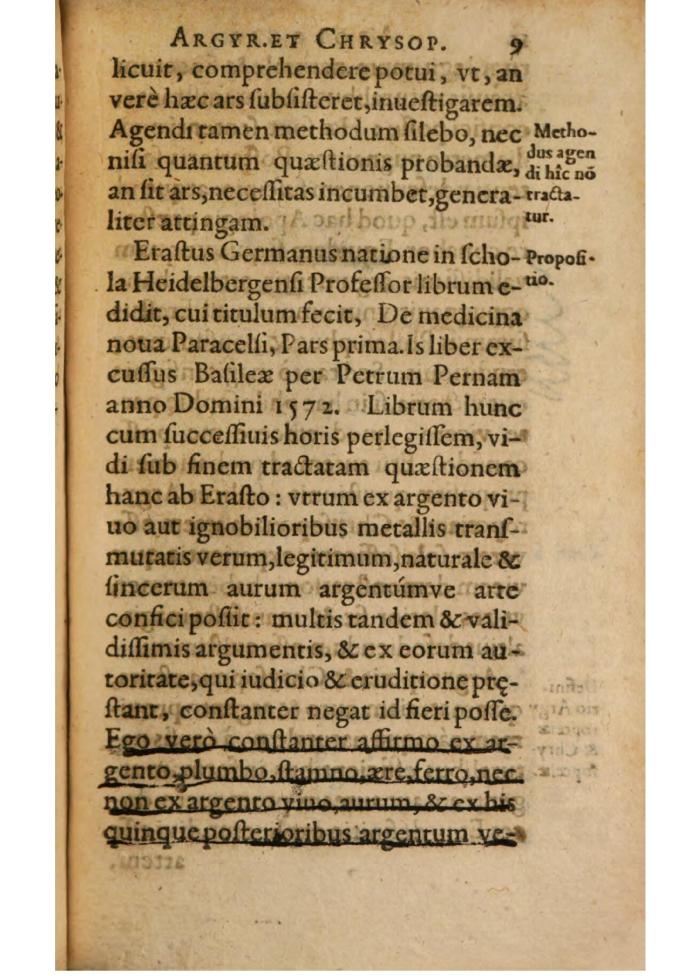 ARGYR. ET CHRYSOP. 9
licuit, comprehendere potui, vt, an
verè hæc ars ſubſiſteret, inueſtigarem.
Agendi tamen methodum ſilebo, nec
niſi quantum quæſtionis probandæ,
an ſit ars, neceſſitas incumbet, genera-
liter attingam.
Metho-
dus agen
di hîc nō
tracta-
tur.
Eraſtus Germanus natione in ſcho-
la Heidelbergenſi Profeſſor librum e-
didit, cui titulum fecit, De medicina
noua Paracelſi, Pars prima. Is liber ex-
cuſſus Baſileæ per Petrum Pernam
anno Domini 1572. Librum hunc
cum ſucceſſiuis horis perlegiſſem, vi-
di ſub finem tractatam quæſtionem
hanc ab Eraſto : vtrum ex argento vi-
uo aut ignobilioribus metallis tranſ-
mutatis verum, legitimum, naturale &
ſincerum aurum argentúmve arte
confici poſſit : multis tandem & vali-
diſſimis argumentis, & ex eorum au-
toritate, qui iudicio & eruditione prę-
ſtant, conſtanter negat id fieri poſſe.
Ego verò conſtanter affirmo ex ar-
gento, plumbo, ſtamno, ære, ferro, nec
non ex argento viuo, aurum, & ex his
quinque poſterioribus argentum ve-
Propoſi-
tio.